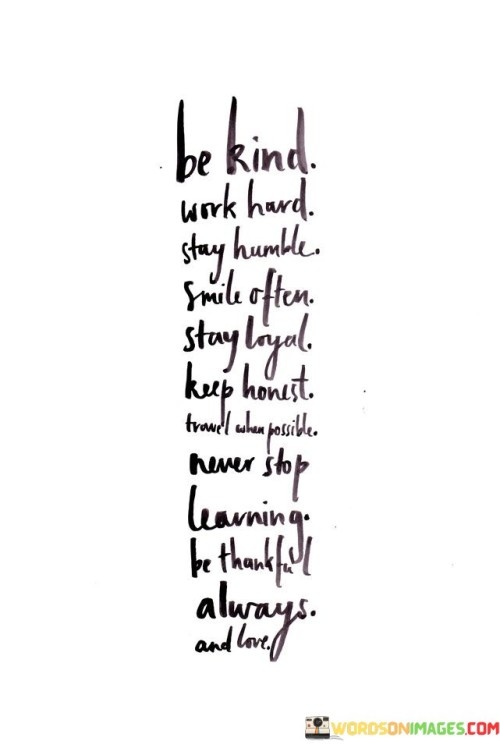 be kind.
work hard.
stay humble.
smile often.
stay loyal.
keep honest.
travel when possible.
never stop
learning.
be thankful
always.
and love.
WORDSONIMAGES.COM